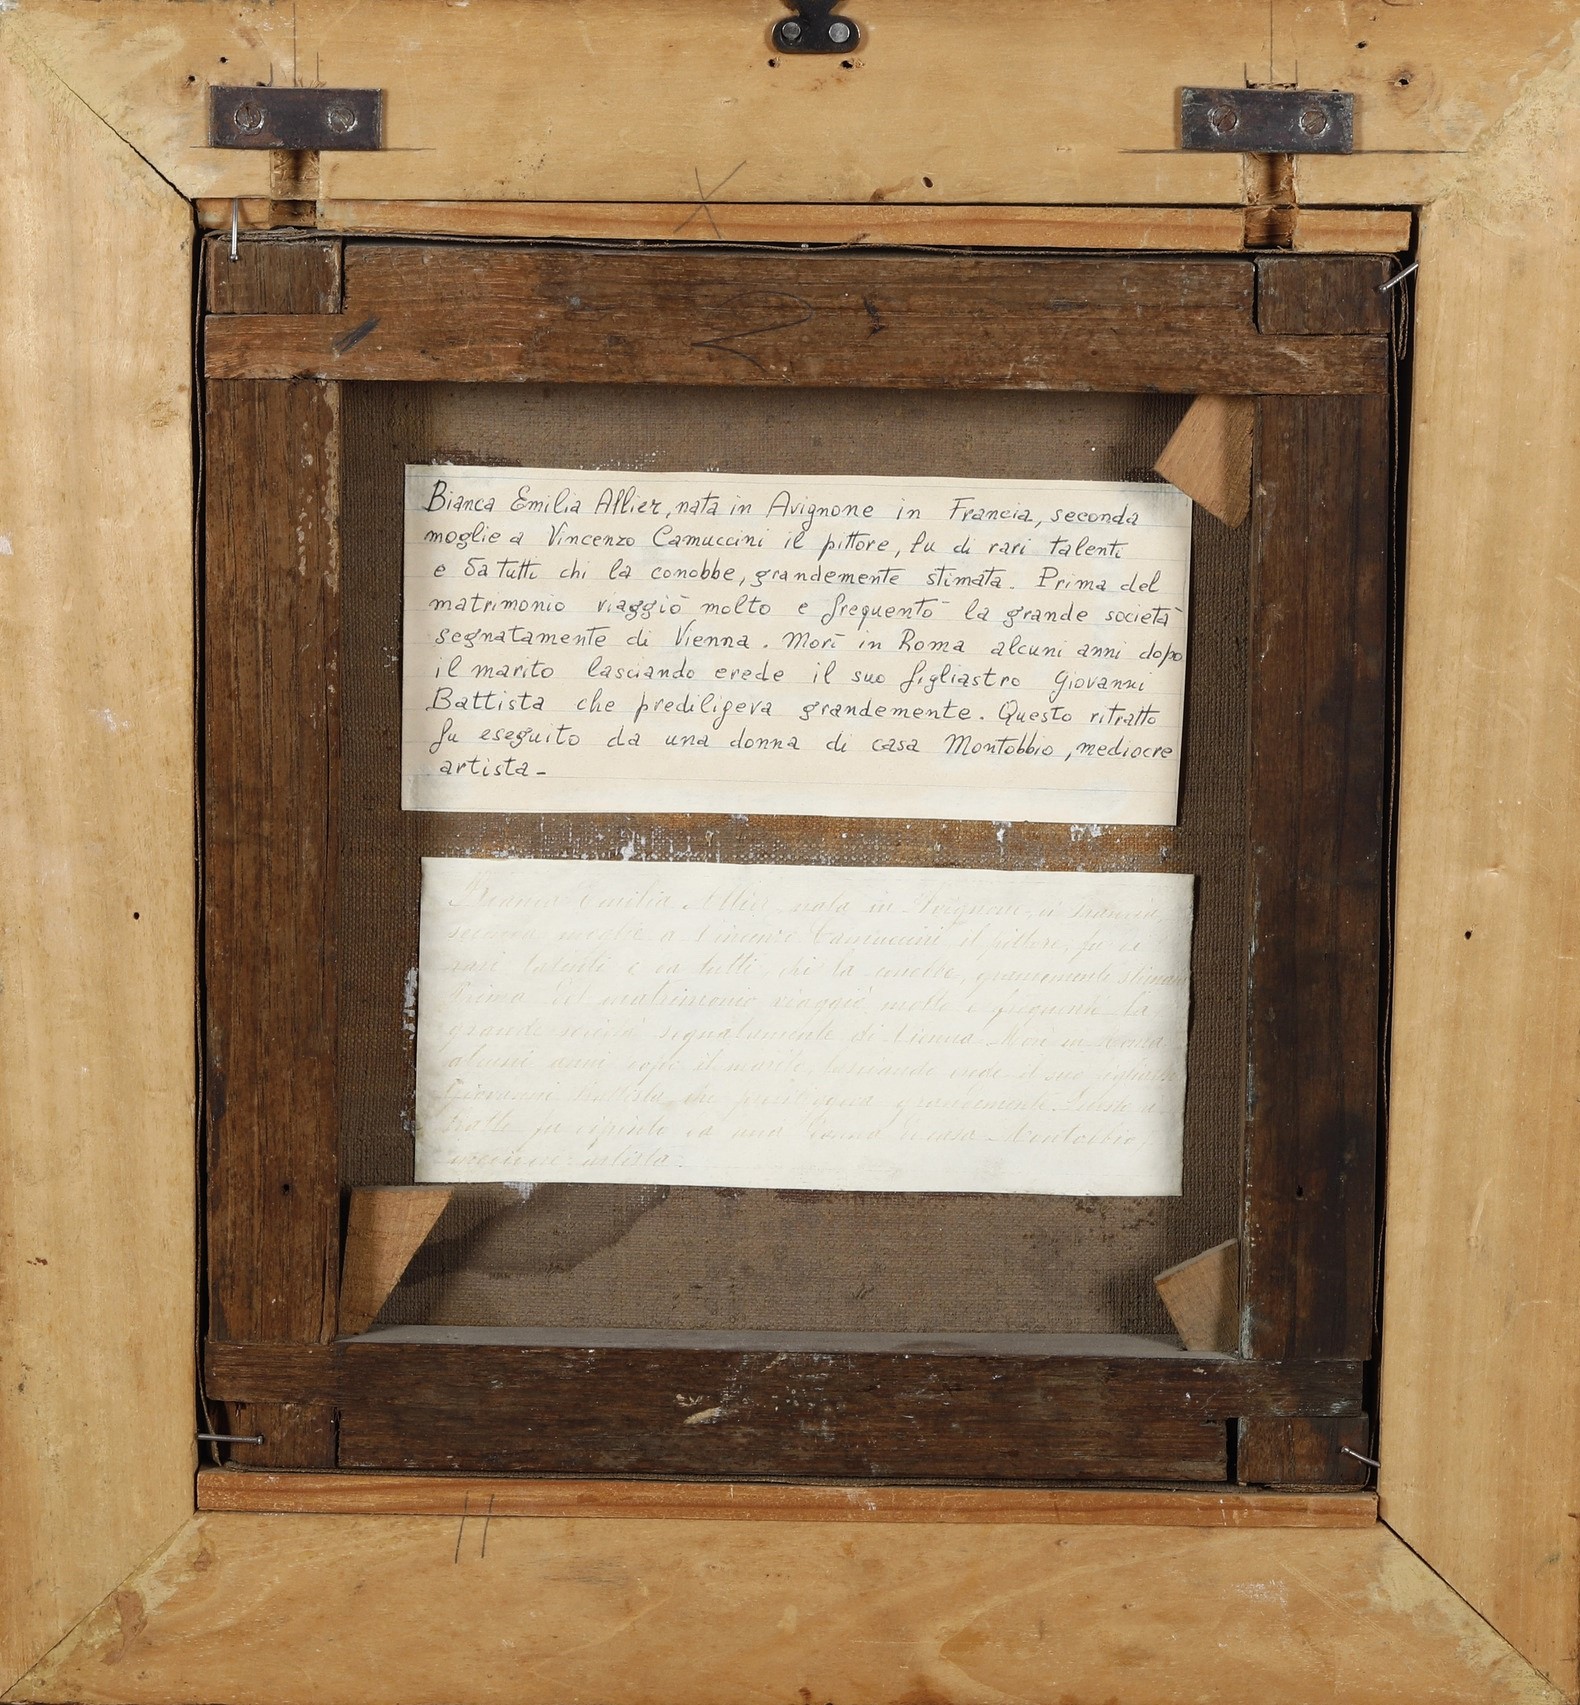 2
Bianca Emilia Allier, nata in Avignone in Francia, seconda
moglie a Vincenzo Camuccini il pittore, fu di rari talenti
e da tutti chi la conobbe, grandemente stimata. Prima del
matrimonio viaggiò molto e frequentò la grande società
segnatamente di Vienna. Morì in Roma alcuni anni dopo
il marito lasciando erede il suo figliastro Giovanni
Battista che prediligeva grandemente. Questo ritratto
fu eseguito da una donna di casa Montobbio, mediocre
artista-
Bianca Emilia Allier nata in Avignone, in Francia,
seconda moglie a Vincenzo Camuccini il pittore, fu di
rari talenti e da tutti chi la conobbe, grandemente stimata
Prima del matrimonio viaggiò molto e frequentò la
grande società segnatamente di Vienna. Morì in Roma
alcuni anni dopo il marito, lasciando erede il suo figliastro
Giovanni Battista che prediligeva grandemente. Questo ri-
tratto fu da una donna di casa Montobbio,
mediocre artista.